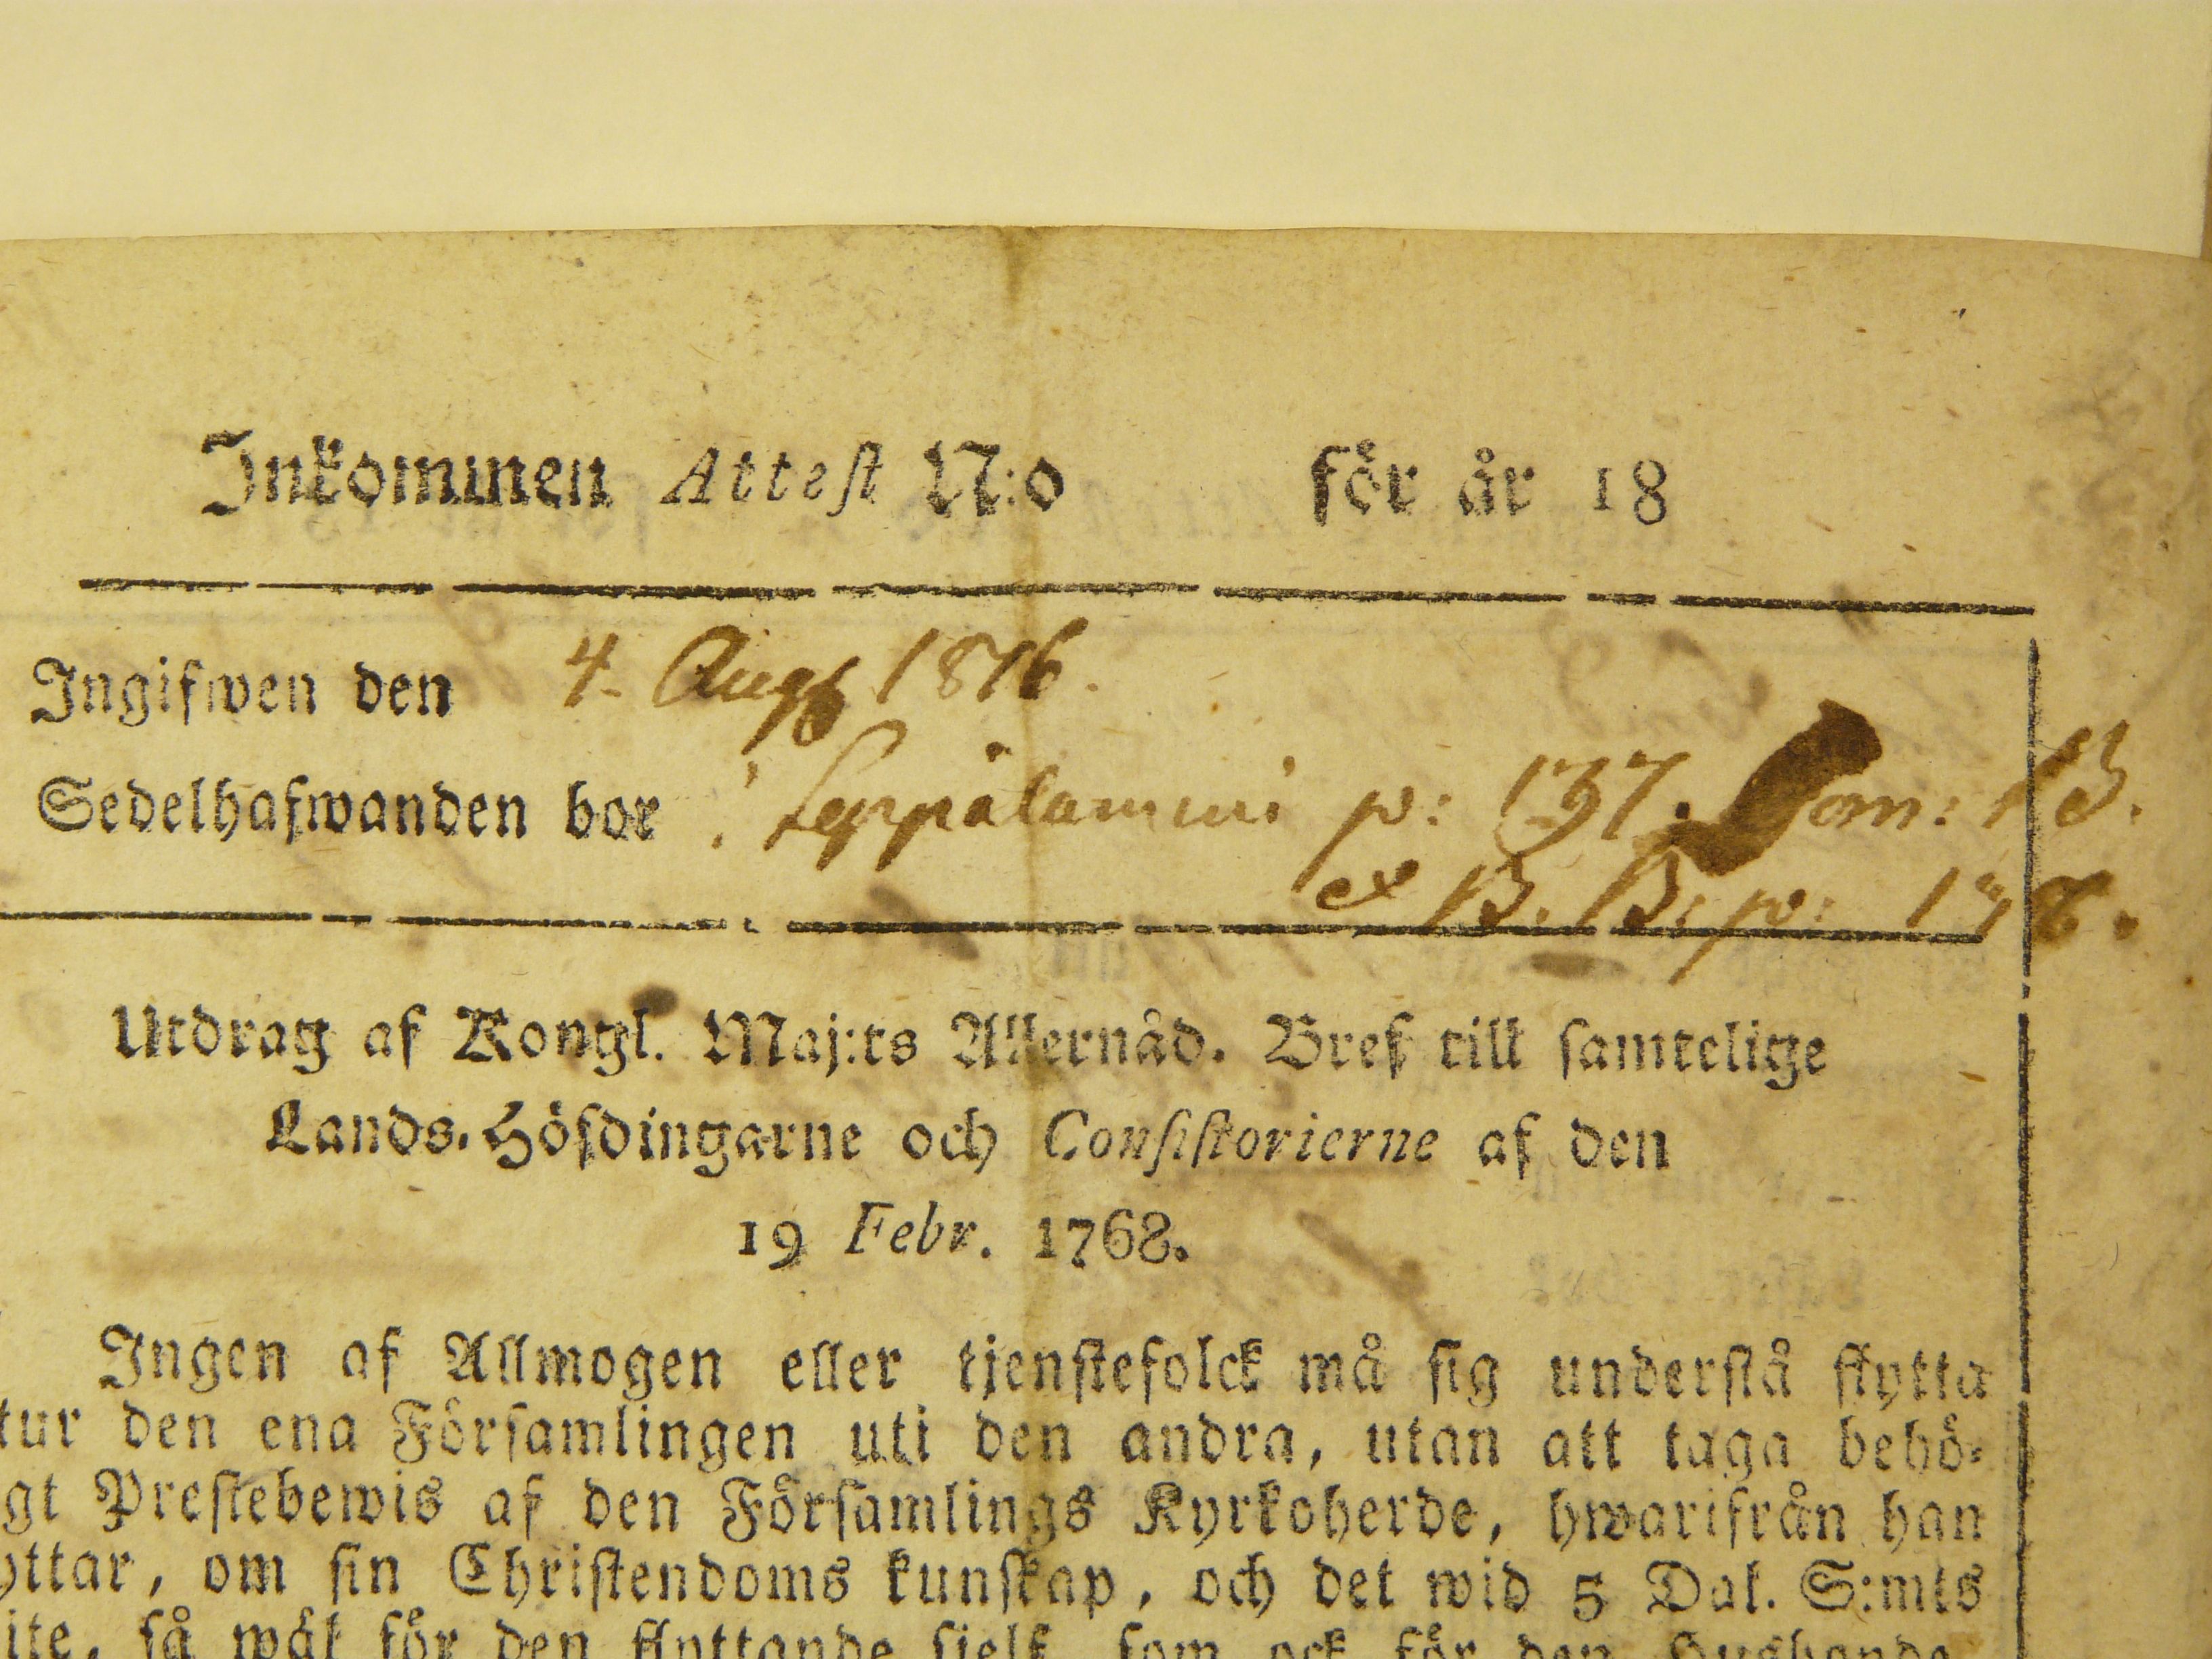 Inkommen Attest N:o för år 18
Ingifwen den 4. Aug 1816.
Sedelhafwanden bor i Leppälammi p: 137. Tom: 13.
et B. B: p:
Utdrag af Kongl. Maj:ts Allernåd. Bref till samtelige
Lands-Höfdingarne och Consistorierne af den
19 Febr. 1768.
Ingen af Allmogen eller tjenstefolck må sig understå flytta
tur den ena Församlingen uti den andra, utan att taga behö-
gt Prestebewis af den Församlings Kyrkoherde, hwarifrån han
yttar, om sin Christendoms kunskap, och det wid 5 Dal. S:mts
ite, så wäl för den flyttande sielf, som ock för den Husbonde